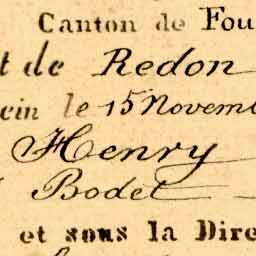 Canton de Fou
t de Redon
ein le 15 Novem
Henry
Bodet
et sous la Dire